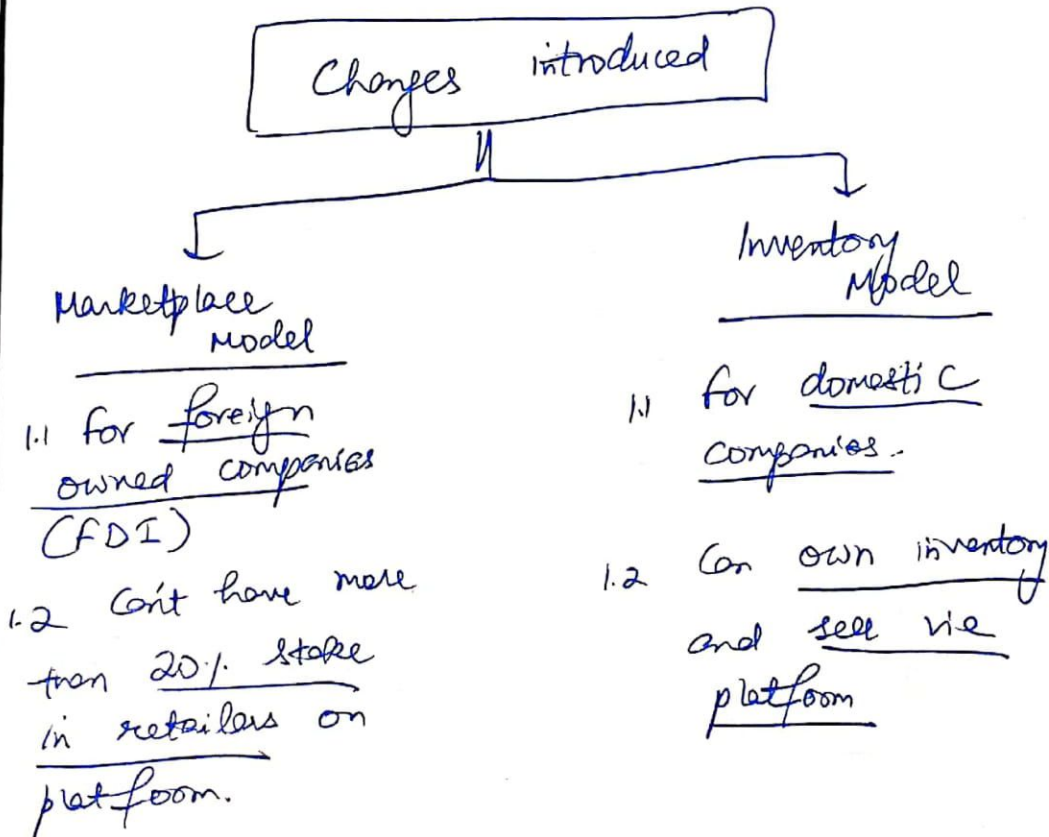 Changes introduced
Marketplace
Model
1.1 for foreign
owned companies
(FDI)
1.2 Can't have more
than 20% stake
in retailers on
platform.
Inventory
Model
1.1 for domestic
companies.
1.2 Can own inventory
and sell via
platform